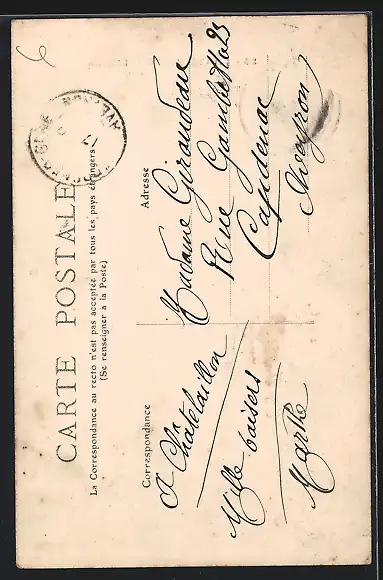 6
CARTE POSTALE
La Correspondance au recto n'est pas acceptée par tous les pays étrangers
(Se renseigner à la Poste)
Correspondance
Adresse
A Châtelaillon
Mille baisers
Marthe
Madame Giraudeau
Rue Gambetta 23
Capdenac
Aveyron
AVEYRON